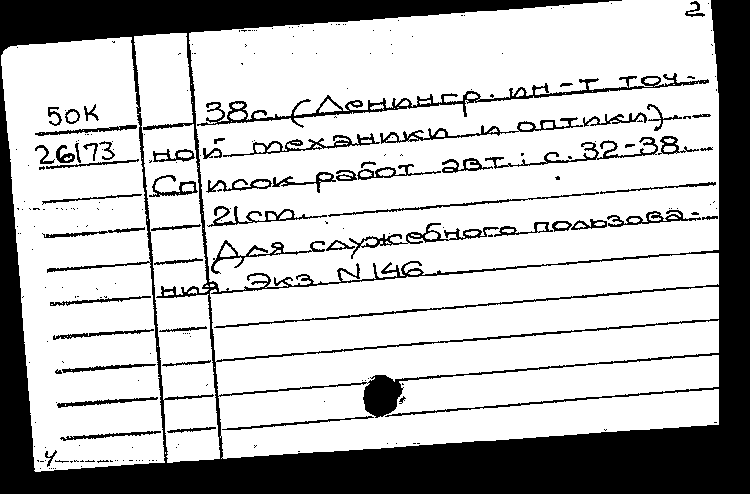 2
50К 38с. (Ленингр. ин-т точ-
26173 ной механики и оптики)
Список работ авт.: с. 32-38.
21cm.
Для служебного пользова-
ния. Экз. N 146.
4